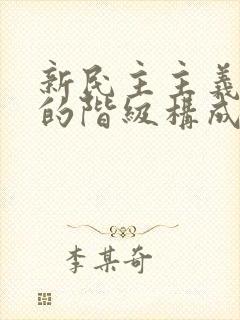 新民主主義
的階級構成
李某奇